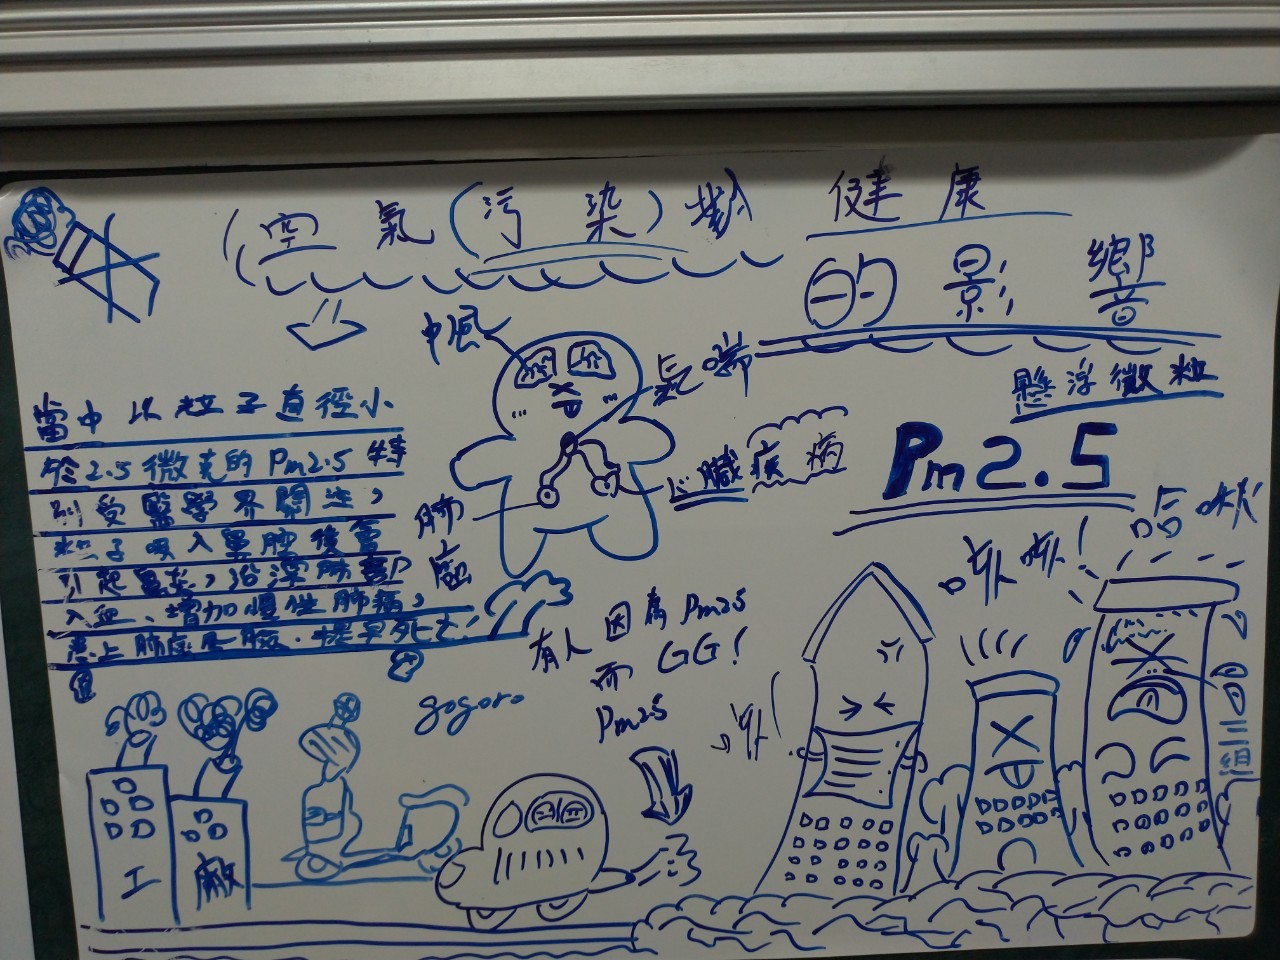 空氣(污染)對健康
的影響
中風
氣喘
懸浮微粒
Pm2.5
心臟疾病
肺
當中以粒子直徑小
於2.5微克的Pm2.5特
別受醫學界關注,
粒子吸入鼻腔後會
引起鼻炎,沿深肺部
入血、增加慢性肺病,
患上肺癌
提早死亡!
有人因為Pm2.5
而GG!
Pm2.5
gogoro
工廠
哈啾
三組